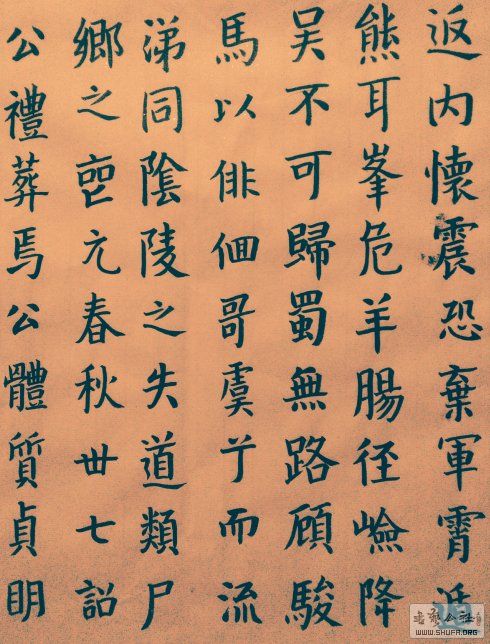 返内懷震恐棄軍霄
熊耳峯危羊腸径嶮降
吴不可歸蜀無路顧駿
馬以俳佪哥虞兮而流
涕同陰陵之失道類尸
鄉之元春秋卅七詔
公禮葬焉公體質貞明
WWW.SHUFA.ORG